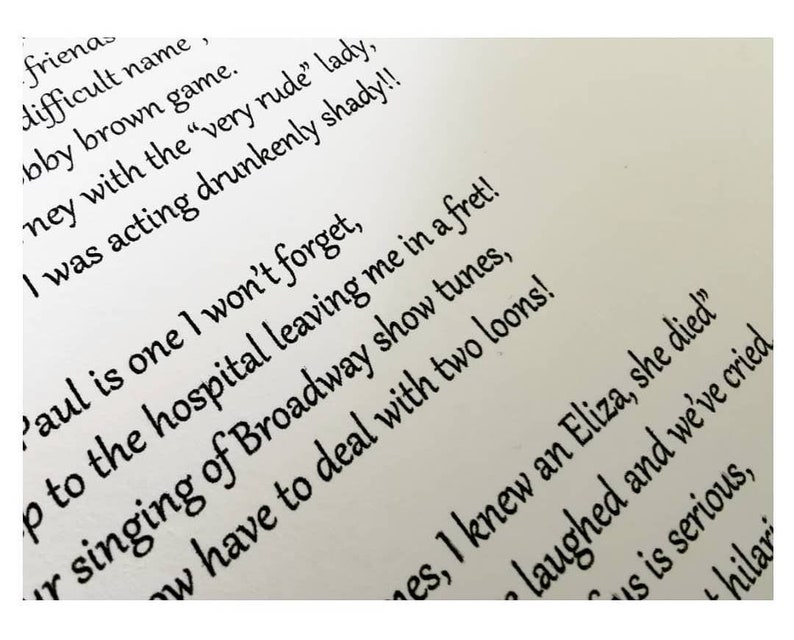 friends
difficult name",
bby brown game.
ney with the “very rude” lady,
I was acting drunkenly shady!!
Paul is one I won't forget,
p to the hospital leaving me in a fret!
ur singing of Broadway show tunes,
ow have to deal with two loons!
mes, I knew an Eliza, she died”
e laughed and we've cried
us is serious,
t hilari